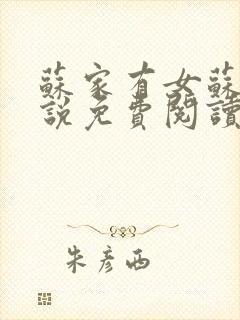 蘇家有女蘇
說免費閱讀
朱彥西